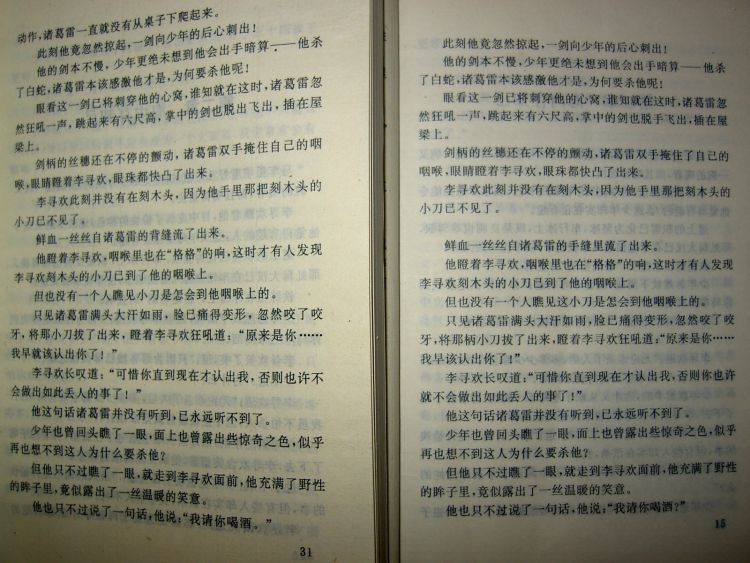 动作，诸葛雷一直就没有从桌子下爬起来。
此刻他竟忽然掠起，一剑向少年的后心刺出！
他的剑本不慢，少年更绝未想到他会出手暗算——他杀
了白蛇，诸葛雷本该感激他才是，为何要杀他呢！
眼看这一剑已将刺穿他的心窝，谁知就在这时，诸葛雷忽
然狂吼一声，跳起来有六尺高，掌中的剑也脱出飞出，插在屋
梁上。
剑柄的丝穗还在不停的颤动，诸葛雷双手掩住了自己的咽
喉，眼睛瞪着李寻欢，眼珠都快凸了出来。
李寻欢此刻并没有在刻木头，因为他手里那把刻木头的
小刀已不见了。
鲜血一丝丝自诸葛雷的背缝流了出来。
他瞪着李寻欢，咽喉里也在“格格”的响，这时才有人发现
李寻欢刻木头的小刀已到了他的咽喉上。
但也没有一个人瞧见小刀是怎会到他咽喉上的。
只见诸葛雷满头大汗如雨，脸已痛得变形，忽然咬了咬
牙，将那小刀拔了出来，瞪着李寻欢狂吼道：“原来是你……
我早就该认出你了！”
李寻欢长叹道：“可惜你直到现在才认出我，否则也许不
会做出如此丢人的事了！”
他这句话诸葛雷并没有听到，已永远听不到了。
少年也曾回头瞧了一眼，面上也曾露出些惊奇之色，似乎
再也想不到这人为什么要杀他？
但他只不过瞧了一眼，就走到李寻欢面前，他充满了野性
的眸子里，竟似露出了一丝温暖的笑意。
他也只不过说了一句话，他说：“我请你喝酒。”
31
此刻他竟忽然掠起，一剑向少年的后心刺出！
他的剑本不慢，少年更绝未想到他会出手暗算——他杀
了白蛇，诸葛雷本该感激他才是，为何要杀他呢！
眼看这一剑已将刺穿他的心窝，谁知就在这时，诸葛雷忽
然狂吼一声，跳起来有六尺高，掌中的剑也脱手飞出，插在屋
梁上。
剑柄的丝穗还在不停的颤动，诸葛雷双手掩住了自己的
咽喉，眼睛瞪着李寻欢，眼珠都快凸了出来。
李寻欢此刻并没有在刻木头，因为他手里那把刻木头的
小刀已不见了。
鲜血一丝丝自诸葛雷的手缝里流了出来。
他瞪着李寻欢，咽喉里也在“格格”的响，这时才有人发现
李寻欢刻木头的小刀已到了他的咽喉上。
但也没有一个人瞧见这小刀是怎会到他咽喉上的。
只见诸葛雷满头大汗如雨，脸已痛得变形，忽然咬了咬
牙，将那小刀拔了出来，瞪着李寻欢狂吼道：“原来是你……
我早就该认出你了！”
李寻欢长叹道：“可惜你直到现在才认出我，否则你也许
就不会做出如此丢人的事了！”
他这句话诸葛雷并没有听到，已永远听不到了。
少年也曾回头瞧了一眼，面上也曾露出些惊奇之色，似乎
再也想不到这人为什么要杀他？
但他只不过瞧了一眼，就走到李寻欢面前，他充满了野性
的眸子里，竟似露出了一丝温暖的笑意。
他也只不过说了一句话，他说：“我请你喝酒？”
15